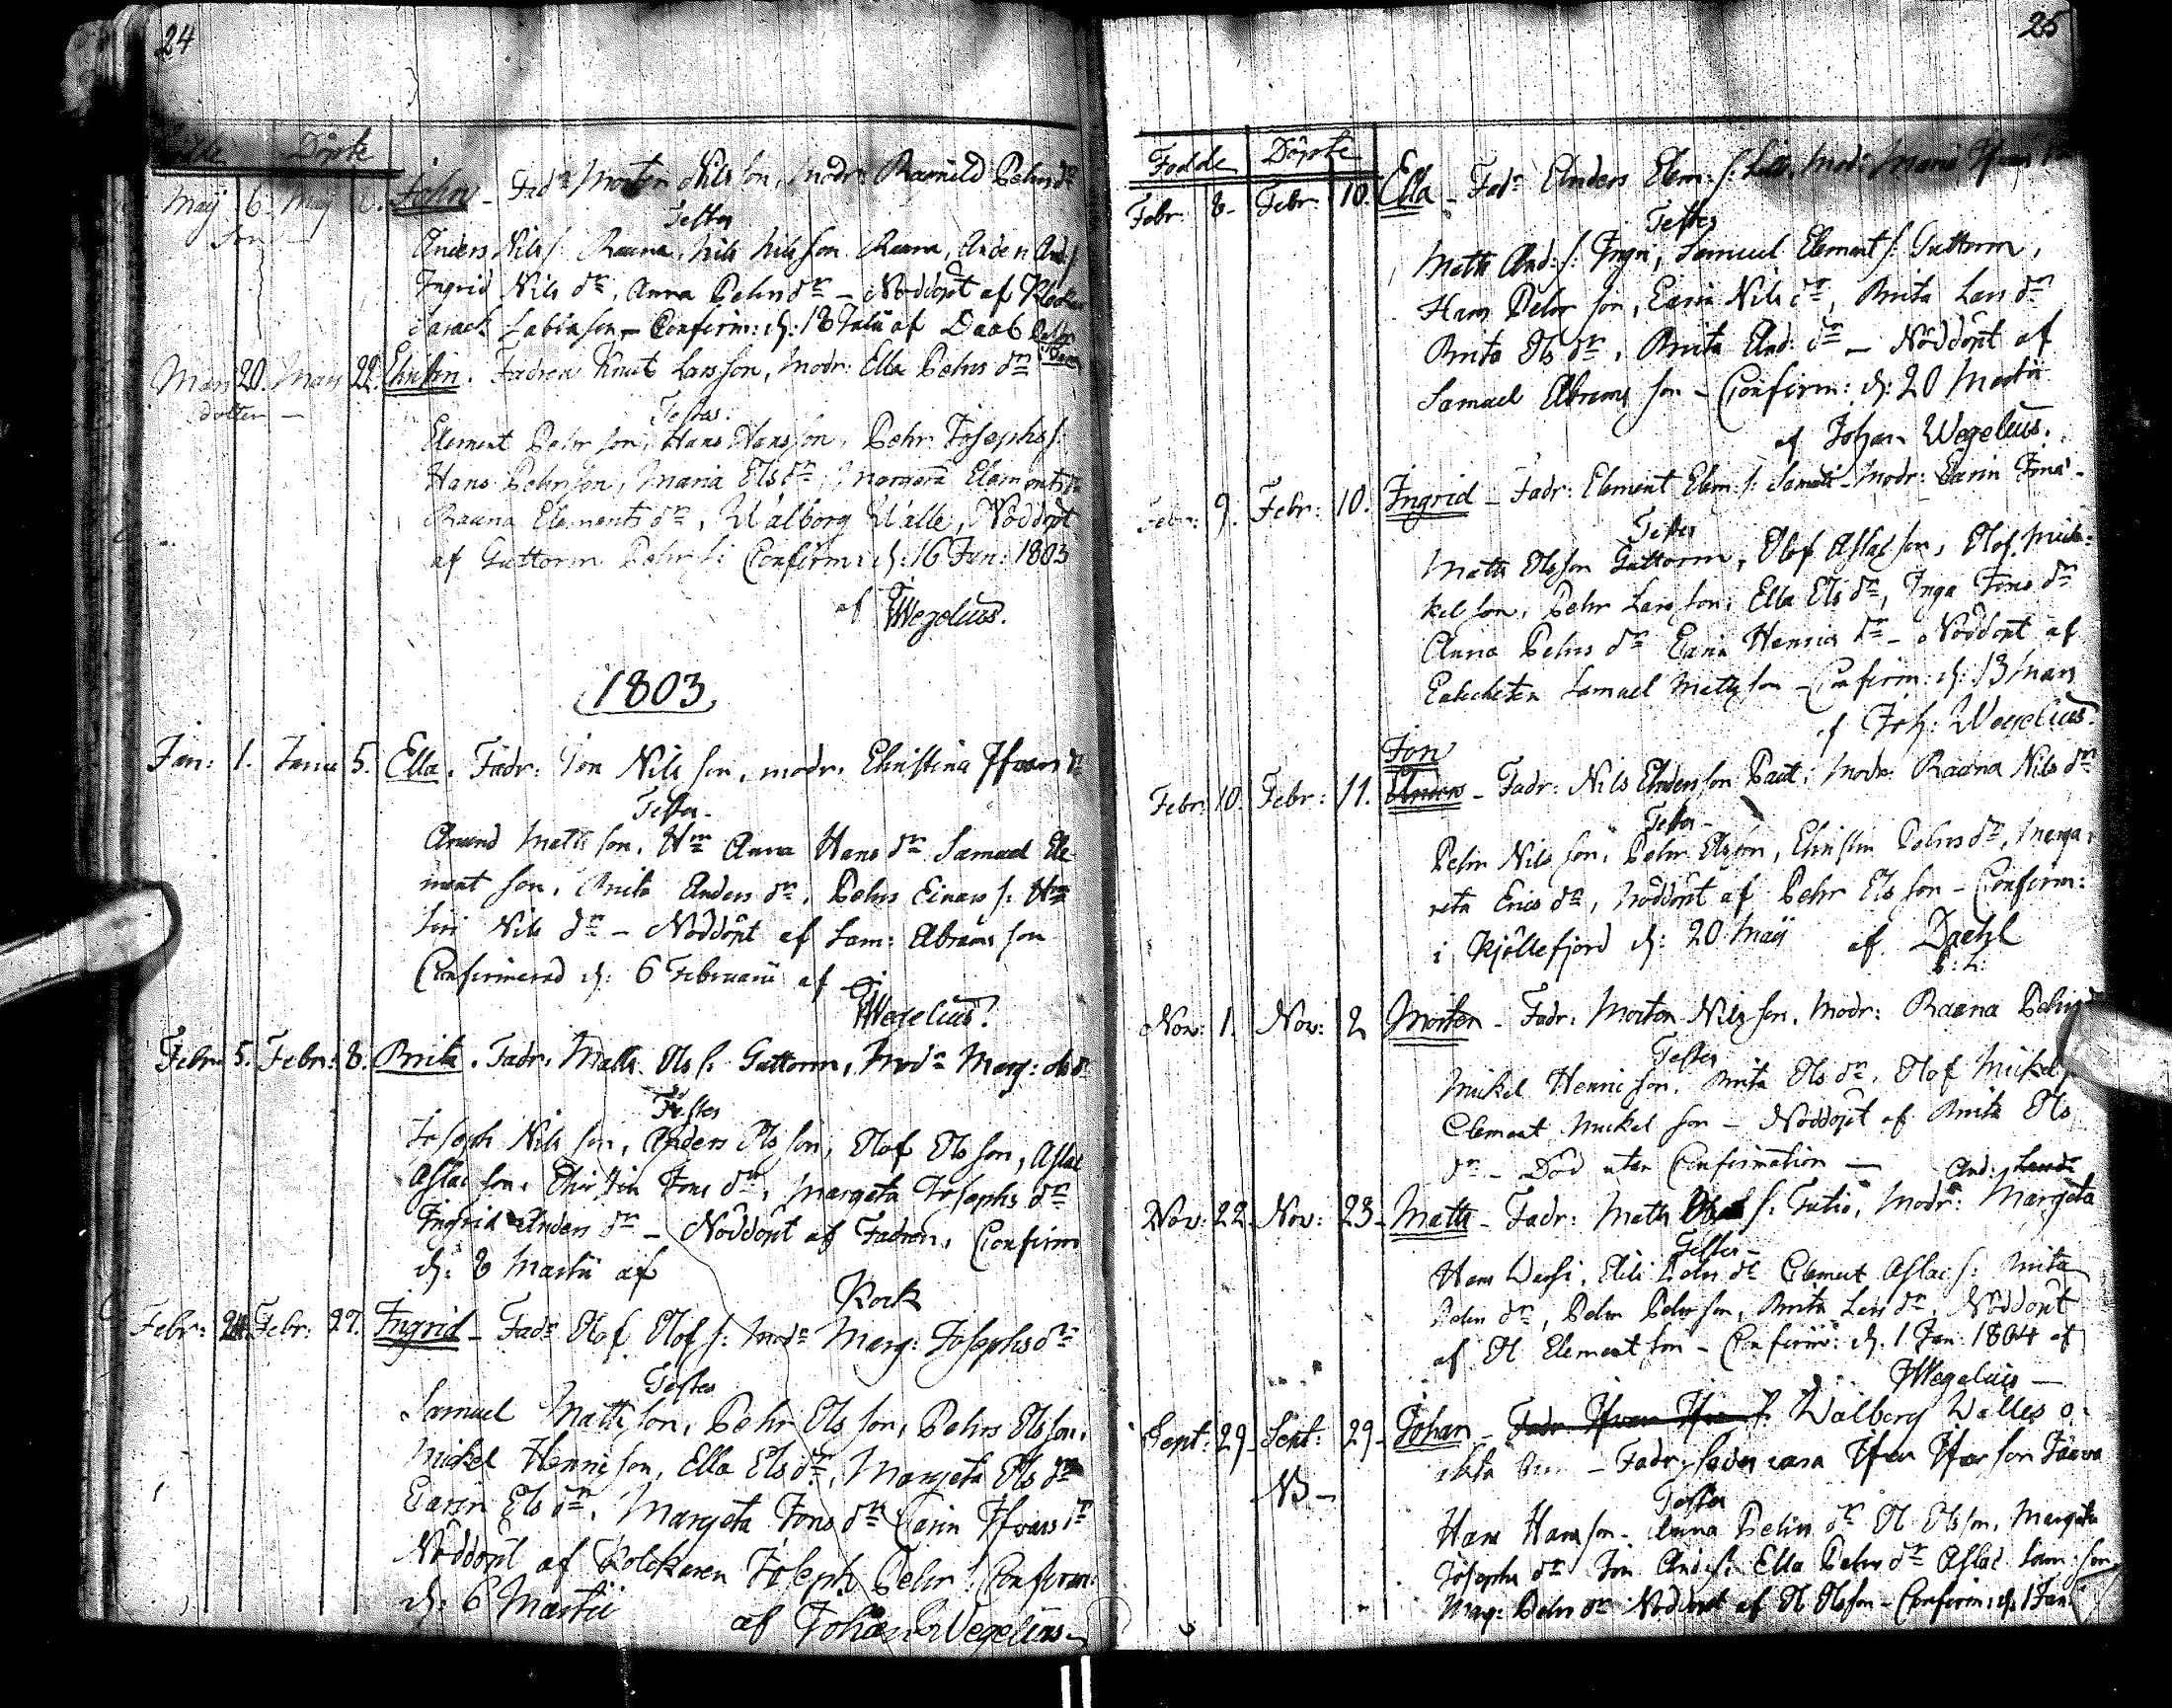 24
Födde Döpte
Maij 6. Maij 8. John - Fadr Morten Nils son, Modr: Ramild Pehrs dr
Son -
Testes
Anders Nils s. Raena, Nils Nilsson Raena, Anders And. s.
Ingrid Nils dr, Anna Pehrs dr - Nöddöpt af
Isaack Labba son - Confirm: d: 18 Julii af Daab
Maij 20. Maij 22. Christin. Fadren Knut Larsson, Modr: Ella Pehrs dr
dotter -
Testes:
Clement Pehr son, Hans Hansson, Pehr Josephs s.
Hans Pehrson, Maria Ols dr, Margareta Clements dr
Raena Clements dr, Walborg Walle, Nöddöpt
af Guttorm Pehr s: Confirm: d: 16 Jan: 1803
af JWegelius.
1803
Jan: 1. Janu 5. Ella. Fadr: Jon Nils son, modr. Christina Ifvars dr
Testes -
Amund Matts son, Hu Anna Hans dr Samuel Cle-
ment son, Brita Anders dr, Pehrs Einars s. Hu
Siri Nils dr - Nöddöpt af Sam: Abrams son
Confirmerad d: 6 Februarii af
JWegelius.
Febr: 5. Febr: 8. Brita. Fadr. Matts Ols s. Guttorm, Modr Marg: Ols dr
Testes
Joseph Nils son, Anders Ols son, Olof Ols son, Aslac
Aslac son, Christin Jons dr, Margeta Josephs dr
Ingrid Anders dr - Nöddöpt af Fadren, Confirm
d: 8 Martii af
Kock
Febr: 24. Febr: 27. Ingrid - Fadr Olof Olof s: Modr Marg: Josephs dr
Testes
Samuel Matts son, Pehr Ols son, Pehrs Ols son,
Mickel Henric son, Ella Ols dr, Margeta Ols dr
Carin Ols dr, Margeta Jons dr Carin Ifvars dr
Nöddöpt af Klockaren Joseph Pehr s. Confirm:
d: 6 Martii
af Johan Wegelius -
25
Födde Döpte
Febr: 8 - Febr: 10. Ella - Fadr Anders Clem: s. Modr: Maria Ifvars
Testes
Matts And: s: Inga, Samuel Clement s: Guttorm,
Hans Pehr son, Carin Nils dr, Brita Lars dr
Brita Ols dr, Brita And: dr - Nöddöpt af
Samuel Abrams son - Confirm: d: 20 Martii
af Johan Wegelius.
Febr: 9. Febr: 10. Ingrid - Fadr: Clement Clem: s: Modr: Carin Jons -
Testes
Matts Olsson Guttorm, Olof Aslac son, Olof Mic-
kel son, Pehr Lars son, Ella Ols dr, Inga Jons dr
Anna Pehrs dr Carin Henrics dr - Nöddöpt af
Catecheten Samuel Matts son - Confirm: d: 13 Mars
af Joh: Wegelius.
Jon
Febr: 10. Febr: 11. Anders - Fadr: Nils Anders son Pact; Modr: Raena Nils dr
Testes -
Pehr Nils son, Pehr Olsson, Christin Pehrs dr, Marga-
reta Erics dr, Nöddöpt af Pehr Ols son - Confirm:
i Kjöllefjord d: 20 Maij af Daehl
P: L:
Nov: 1. Nov: 2 Morten - Fadr: Morten Nils son, Modr: Raena Pehrs d
Testes
Mickel Henric son, Brita Ols dr, Olof Mickel s.
Clement Mickel son - Nöddöpt af Brita Ols
dr - Död utan Confirmation - And:
Nov: 22 - Nov: 23 - Matts - Fadr: Matts s. Tutio, Modr: Margeta
Testes -
Hans Warsi, Elli Pehrs dr Clement Aslac s: Brita
Pehrs dr, Pehr Pehrson, Brita Lars dr, Nöddöpt
af Ol Clement son - Confirm: d. 1. Jan: 1804 af
JWegelius -
Sept: 29 - Sept: 29 - Johan - Fadr Ifvar Ifvar s. Walborg Walles o-
ächta son - Fadr: säges vara Ifvar Ifvar son
NB - Testes
Hans Hans son - Anna Pehrs dr Ol Ols son, Margeta
Josephs dr Jon And: s. Ella Pehrs dr Aslac Sam: son,
Marg: Pehrs dr Nöddöpt af Ol Olsson - Confirm: d. 1 Jan: